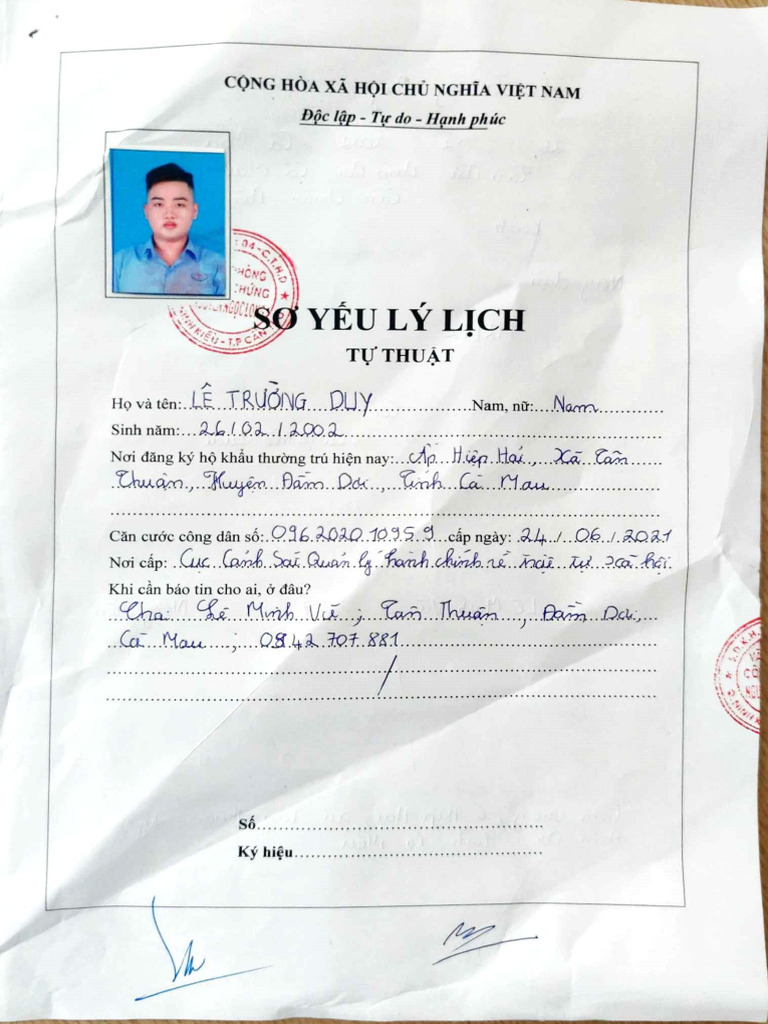 CỘNG HÒA XÃ HỘI CHỦ NGHĨA VIỆT NAM
Độc lập - Tự do - Hạnh phúc
SƠ YẾU LÝ LỊCH
TỰ THUẬT
Họ và tên: LÊ TRƯỜNG DUY Nam, nữ: Nam
Sinh năm: 26/02/2002
Nơi đăng ký hộ khẩu thường trú hiện nay: Ấp Hiệp Hải, Xã Tân
Thuận, Huyện Đầm Dơi, Tỉnh Cà Mau
Căn cước công dân số: 096202010959 cấp ngày: 24/06/2021
Nơi cấp: Cục Cảnh Sát Quản lý hành chính về trật tự xã hội
Khi cần báo tin cho ai, ở đâu?
Cha: Lê Minh ; Tân Thuận, Đầm Dơi,
Cà Mau ; 0842 707 881
Số
Ký hiệu